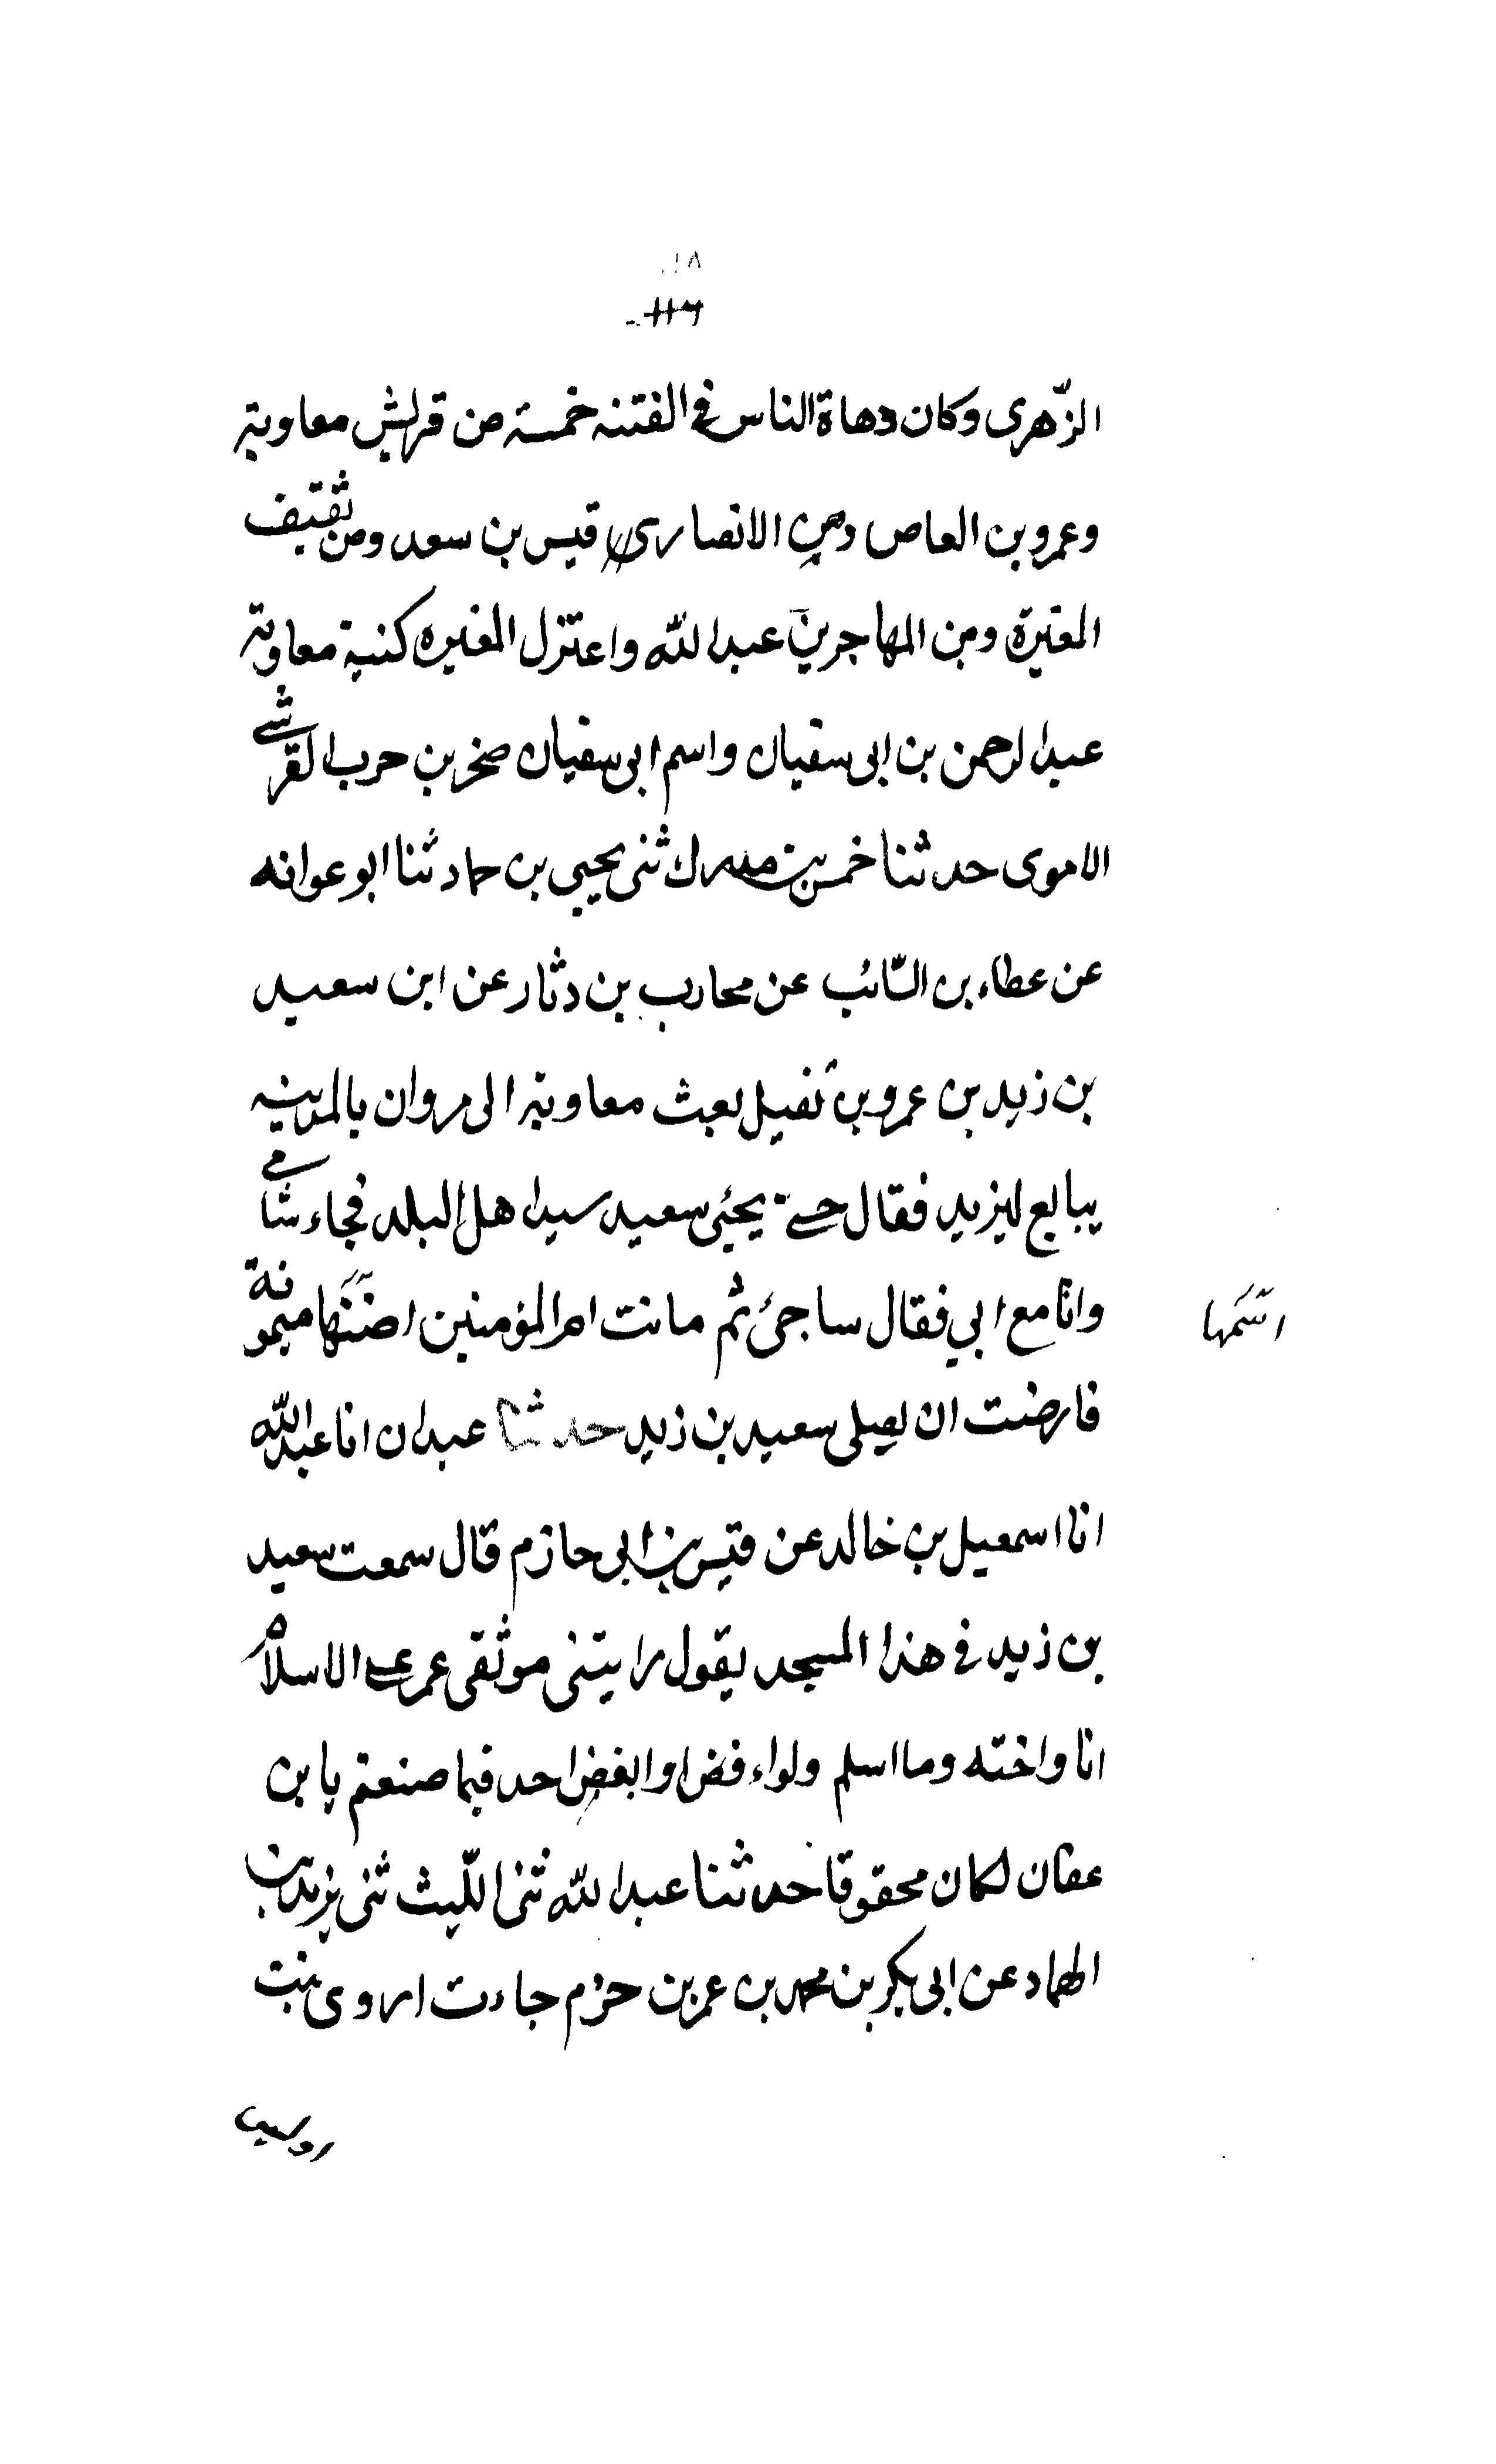 ١١٨
١١٦
الزّهرى وكان دهاة الناس فى الفتنه خمسة من قريش معاوية
وعمرو بن العاص ومن الانصارى قيس بن سعد ومن ثقيف
المغيرة ومن المهاجرين عبد الله واعتزل المغيره كنية معاوية
عبد الرحمن بن ابى سفيان واسم ابى سفيان صخر بن حرب القرشى
الاموى حدثنا بن مدرك ثنى يحيى بن حماد ثنا ابو عوانه
عن عطاء بن السّائب عن محارب بن دثار عن ابن سعيد
بن زيد بن عمرو بن نفيل بعث معاوية الى مروان بالمدينه
يبايع ليزيد فقال حتى يجئ سعيد سيد اهل البلد فجاء شامى
وانا مع ابي فقال ساجئ ثم ماتت ام المؤمنين اضنّها ميمونة
اسّمها
فارضت ان يصلى سعيد بن زيد حدثنا عبدان انا عبد الله
انا اسمعيل بن خالد عن قيس بن ابى حازم قال سمعت سعيد
بن زيد فى هذا المسجد يقول رايتنى موثقى عمر على الاسلام
انا واخته وما اسلم ولو اوفض احد فيما صنعتم بابن
عفان لكان محقوقا حدثنا عبد الله ثنى اللّيث ثنى يزيد بن
الهاد عن ابى بكر بن محمد بن عمر بن حزم جاءت اروى بنت